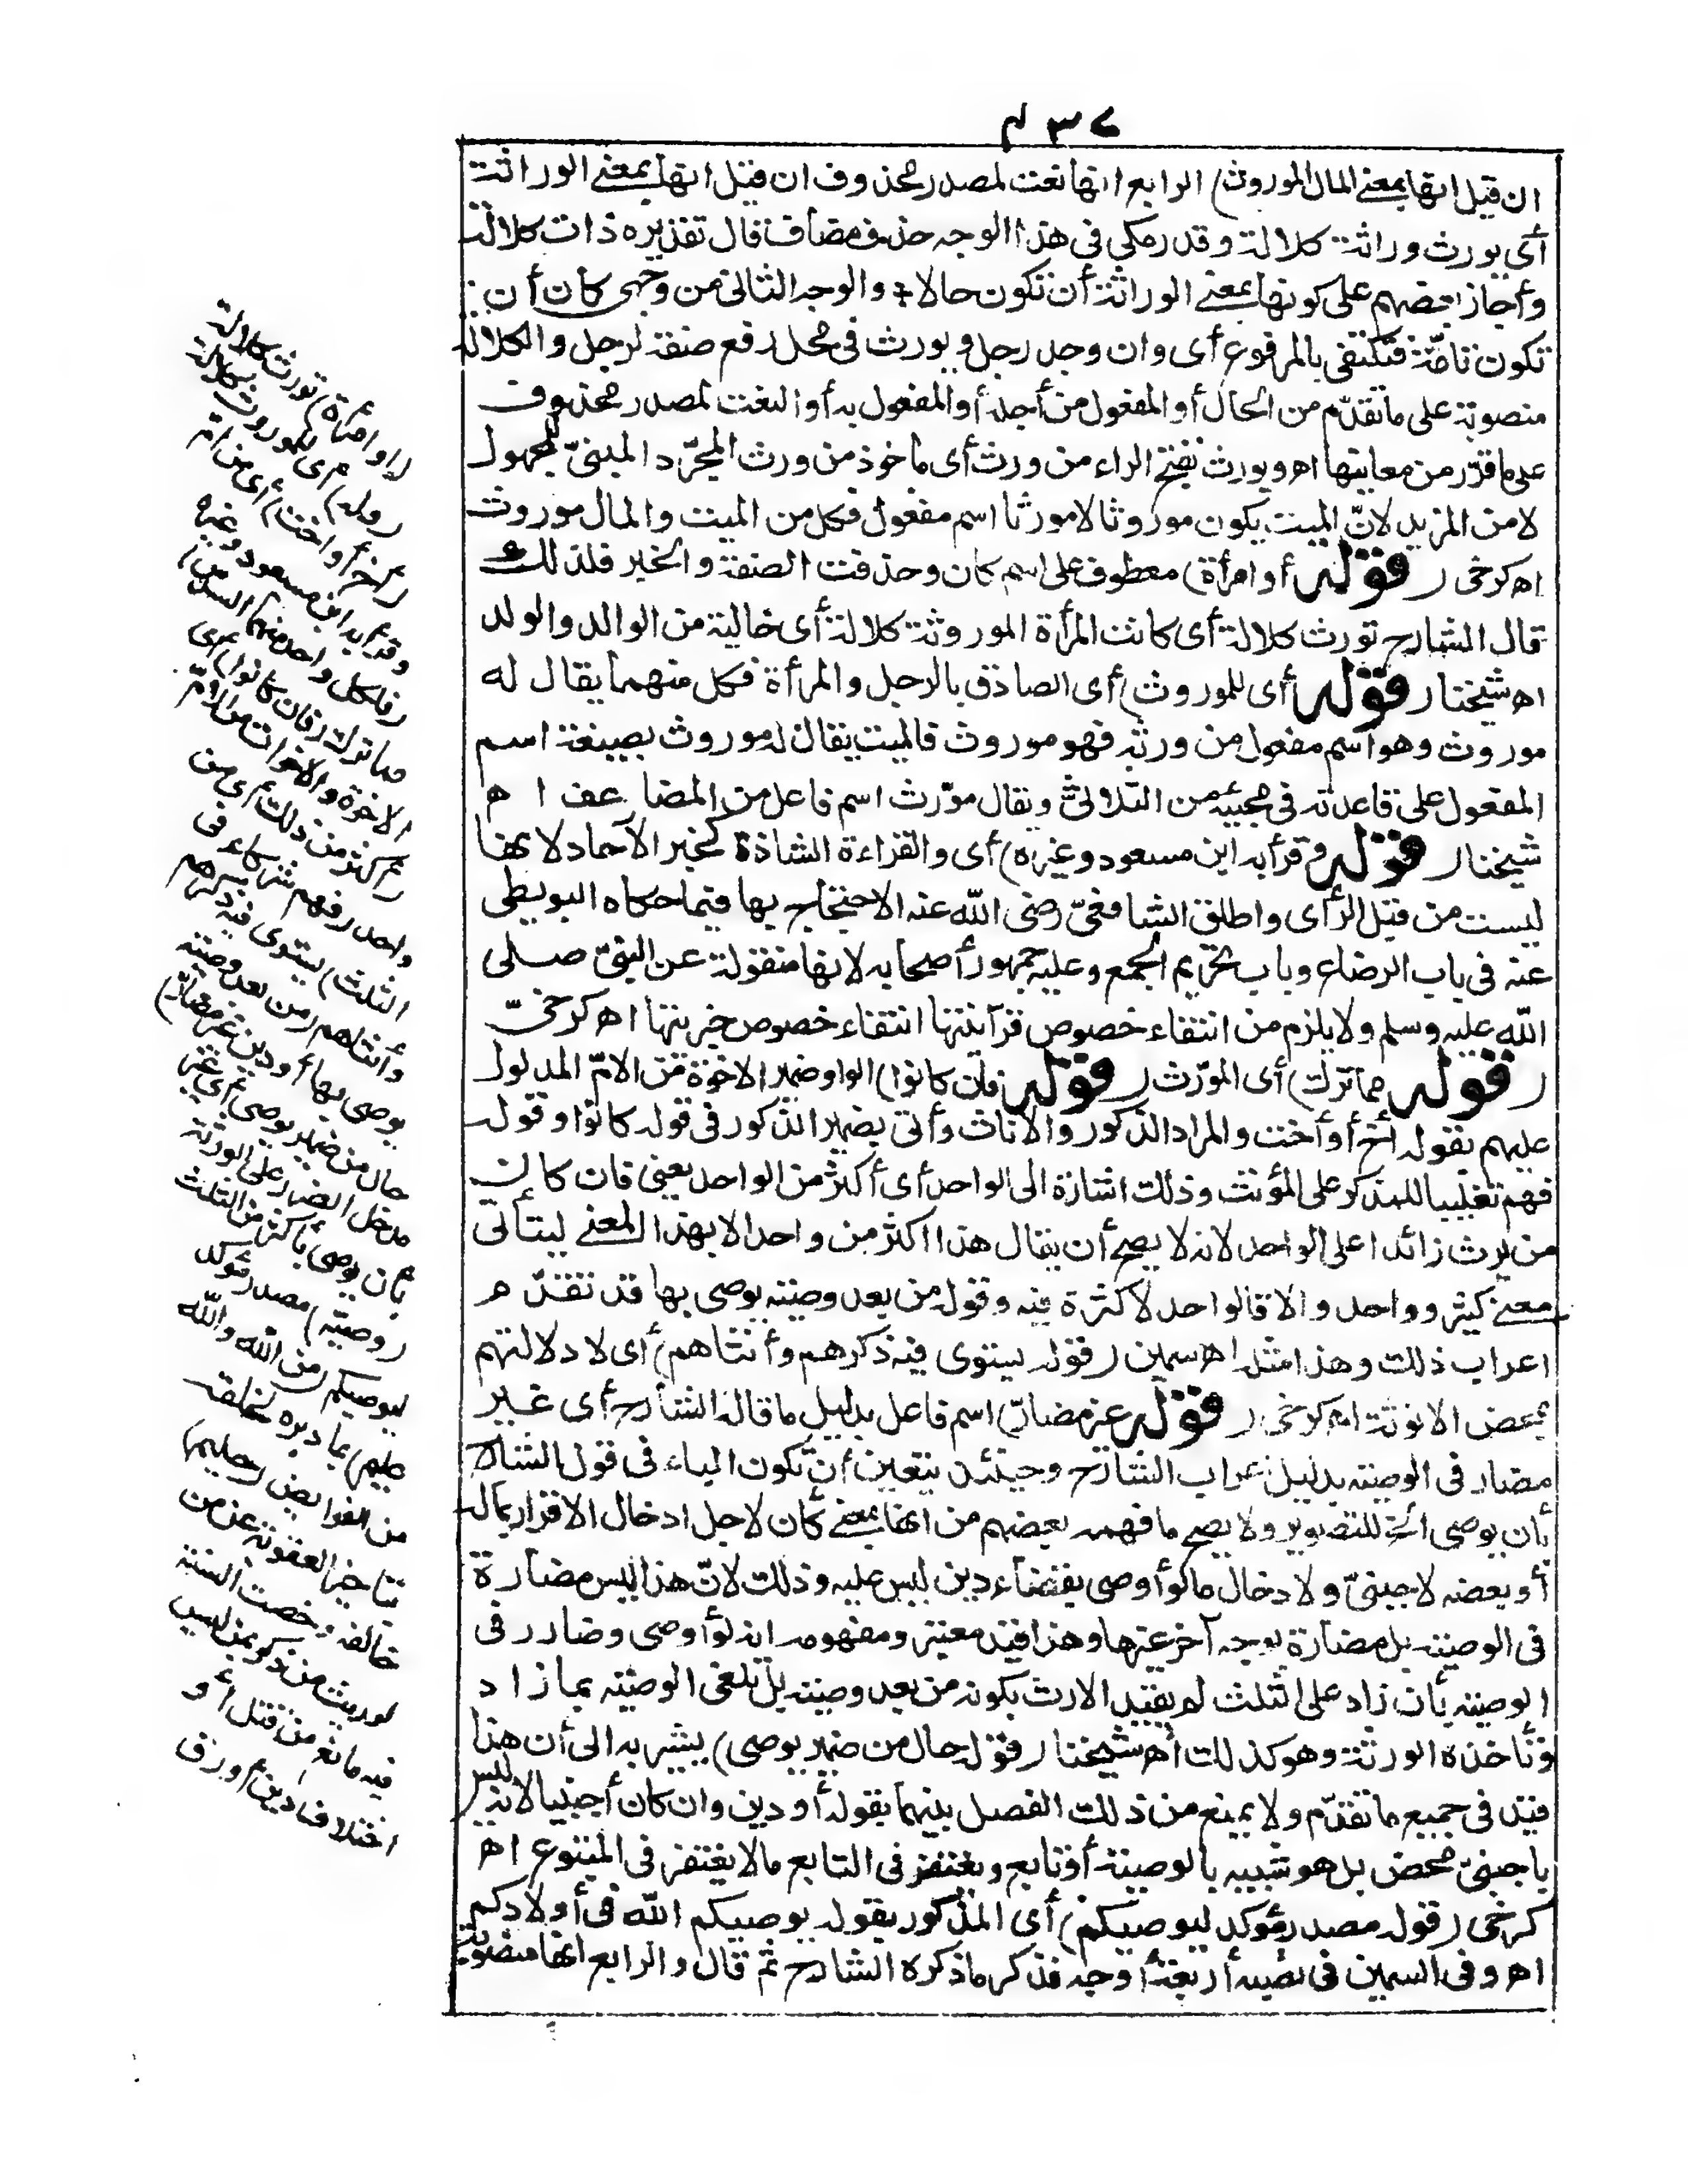 ٤٣٧
ان قيل انها بمعنے المال الموروث) الرابع انها نعت لمصدر محذوف ان قيل انها بمعنے الوراثة
أى يورث وراثة كلالة وقدر مكى فى هذا الوجه حذف مضاف قال تقديره ذات كلالة
وأجاز بعضهم على كونها بمعنے الوراثة أن تكون حالا والوجه الثانى من وجهى كان أن
تكون تامّة فتكتفى بالمرفوع أى وان وجد رجل ويورث فى محل رفع صفة لرجل والكلالة
منصوبة على ما تقدّم من الحال أو المفعول من أجله أو المفعول به أو النعت لمصدر محذوف
على ما قرّر من معانيها اھ ويورث بفتح الراء من ورث أى مأخوذ من ورث المجرّد المبنىّ للمجهول
لا من المزيد لانّ الميت يكون موروثا لا مورثا اسم مفعول فكل من الميت والمال موروث
اھ كرخى (قوله أو امرأة) معطوف على اسم كان وحذفت الصفة والخبر فلذلك
قال الشارح تورث كلالة أى كانت المرأة الموروثة كلالة أى خالية من الوالد والولد
اھ شيخنا (قوله أى للموروث) أى الصادق بالرجل والمرأة فكل منهما يقال له
موروث وهو اسم مفعول من ورثه فهو موروث فالميت يقال له موروث بصيغة اسم
المفعول على قاعدته فى مجيئه من الثلاثىّ ويقال مورّث اسم فاعل من المضاعف اھ
شيخنا (قوله وقرأ به ابن مسعود وغيره) أى والقراءة الشاذة كخبر الآحاد لانها
ليست من قبل الرأى واطلق الشافعىّ رضى الله عنه الاحتجاج بها فيما حكاه البويطى
عنه فى باب الرضاع وباب تحريم الجمع وعليه جمهور أصحابه لانها منقولة عن النبىّ صلى
الله عليه وسلم ولا يلزم من انتفاء خصوص قرآنيتها انتفاء خصوص خبريتها اھ كرخىّ
(قوله مما ترك) أى المورّث (قوله فان كانوا) الواو ضمير الاخوة من الامّ المدلول
عليهم بقوله أخ أو أخت والمراد الذكور والاناث وأتى بضمير الذكور فى قوله كانوا وقوله
فهم تغليبا للمذكر على المؤنث وذلك اشارة الى الواحد أى أكثر من الواحد يعنى فان كان
من يرث زائدا على الواحد لانه لا يصح أن يقال هذا اكثر من واحد الا بهذا المعنے ليتأتى
معنے كثير وواحد والا فالواحد لا كثرة فيه وقوله من بعد وصية يوصى بها قد تقدّم
اعراب ذلك وهذا مثله اھ سمين (قوله يستوى فيه ذكرهم وأنثاهم) أى لادلالتهم
بمحض الانوثة اھ كرخى (قوله غير مضارّ) اسم فاعل بدليل ما قاله الشارح أى غير
مضار فى الوصية بدليل اعراب الشارح وحينئذ يتعين أن تكون الباء فى قول الشارح
بأن يوصى الخ للتصوير ولا يصح ما فهمه بعضهم من انها بمعنے كأن لاجل ادخال الاقرار بماله
أو بعضه لاجنبىّ ولادخال ما لو أوصى بقضاء دين ليس عليه وذلك لانّ هذا ليس مضارة
فى الوصية بل مضارة بوجه آخر غيرها وهذا قيد معتبر ومفهومه انه لو أوصى وضارر فى
الوصية بأن زاد على الثلث لم يقيد الارث بكونه من بعد وصية بل تلغى الوصية بما زاد
وتأخذه الورثة وهو كذلك اھ شيخنا (قوله حال من ضمير يوصى) يشير به الى أن هذا
قيد فى جميع ما تقدّم ولا يمنع من ذلك الفصل بينهما بقوله أو دين وان كان أجنبيا لانه ليس
باجنبىّ محض بل هو شبيه بالوصية أو تابع ويغتفر فى التابع مالا يغتفر فى المتبوع اھ
كرخى (قوله مصدر مؤكد ليوصيكم) أى المذكور بقوله يوصيكم الله فى أولادكم
اھ وفى السمين فى نصبه أربعة أوجه فذكر ما ذكره الشارح ثم قال والرابع انها منصوبة
(أو امرأة) تورث كلالة
(وله) أى للموروث كلالة
(أخ أو أخت) أى من أمّ
وقرأ به ابن مسعود وغيره
(فلكل واحد منهما السدس)
مما ترك (فان كانوا) أى
الاخوة والاخوات من الامّ
(أكثر من ذلك) أى من
واحد (فهم شركاء فى
الثلث) يستوى فيه ذكرهم
وأنثاهم (من بعد وصية
يوصى بها أو دين غير مضارّ)
حال من ضمير يوصى أى غير
مدخل الضرر على الورثة
بأن يوصى بأكثر من الثلث
(وصيّة) مصدر مؤكد
ليوصيكم (من الله والله
عليم) بما دبره لخلقه
من الفرائض (حليم)
بتأخير العقوبة عن من
خالفه وخصت السنة
توريث من ذكر بمن ليس
فيه مانع من قتل أو
اختلاف دين أو رق